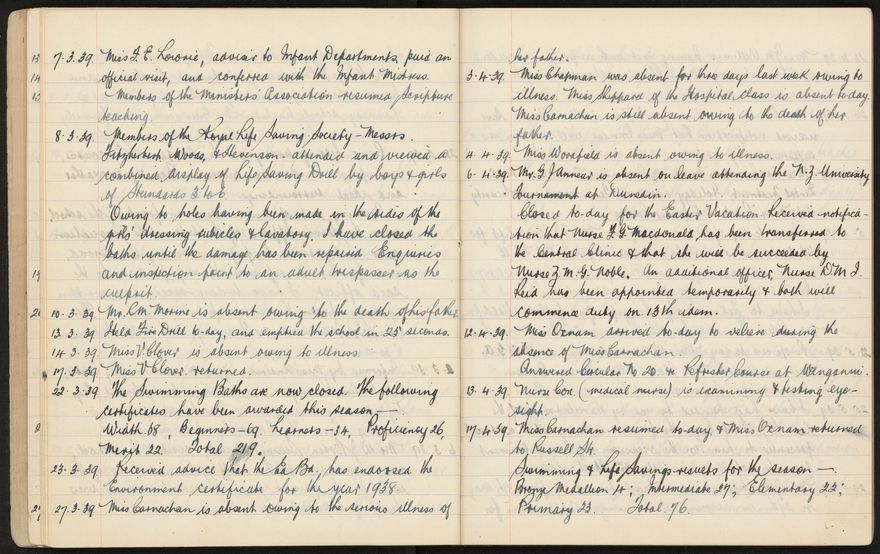 7.3.39. Miss F. E. Lowrie, adviser to Infant Departments, paid an
official visit, and conferred with the Infant Mistress.
Members of the Ministers' Association resumed Scripture
teaching.
8.3.39. Members of the Royal Life Saving Society - Messrs.
Fitzherbert, Woods, & Stevenson attended and viewed a
combined display of Life Saving Drill by boys & girls
of Standards 3 to 6.
Owing to holes having been made in the sides of the
girls' dressing cubicles & lavatory, I have closed the
baths until the damage has been repaired. Enquiries
and inspection point to an adult trespasser as the
culprit.
10.3.39. Mr. C.M. is absent owing to the death of his father.
13.3.39. Held Fire Drill to-day, and emptied the school in 25 seconds.
14.3.39 Miss V Clover is absent owing to illness.
17.3.39 Miss V Clover returned.
22.3.39 The Swimming Baths are now closed. The following
certificates have been awarded this season, —
Width 68, Beginners - 69. Learners - 34, Proficiency 26,
Merit 22. Total 219.
23.3.39 Received advice that the Ed. Bd. has endorsed the
Environment certificate for the year 1938
27.3.39 Miss Carnachan is absent owing to the serious illness of
her father.
3.4.39. Miss Chapman was absent for three days last week owing to
illness. Miss Sheppard of the Hospital class is absent to-day.
Miss Carnachan is still absent owing to the death of her
father.
4.4.39. Miss is absent owing to illness.
6.4.39. Mr. G. J. Annear is absent on leave attending the N.Z University
Tournament at Dunedin.
Closed to-day for the Easter Vacation. Received notifica-
tion that Nurse F. G. Macdonald has been transferred to
the Central Clinic & that she will be succeeded by
Nurse Z. M. G. Noble. An additional officer, Nurse D. M. J.
Reid has been appointed temporarily & both will
commence duty on 13th idem.
12.4.39. Miss Oznam arrived to-day to relieve during the
absence of Miss Carnachan.
Answered Circular No 20. re Refresher Course at Wanganui.
13.4.39. Nurse Cox. (medical nurse) is examining & testing eye-
sight.
17.4.39. Miss Carnachan resumed to-day & Miss Oznam returned
to Russell St.
Swimming & Life Saving results for the season —.
Bronze Medallion 4; Intermediate 27; Elementary 22;
Primary 23. Total. 76.